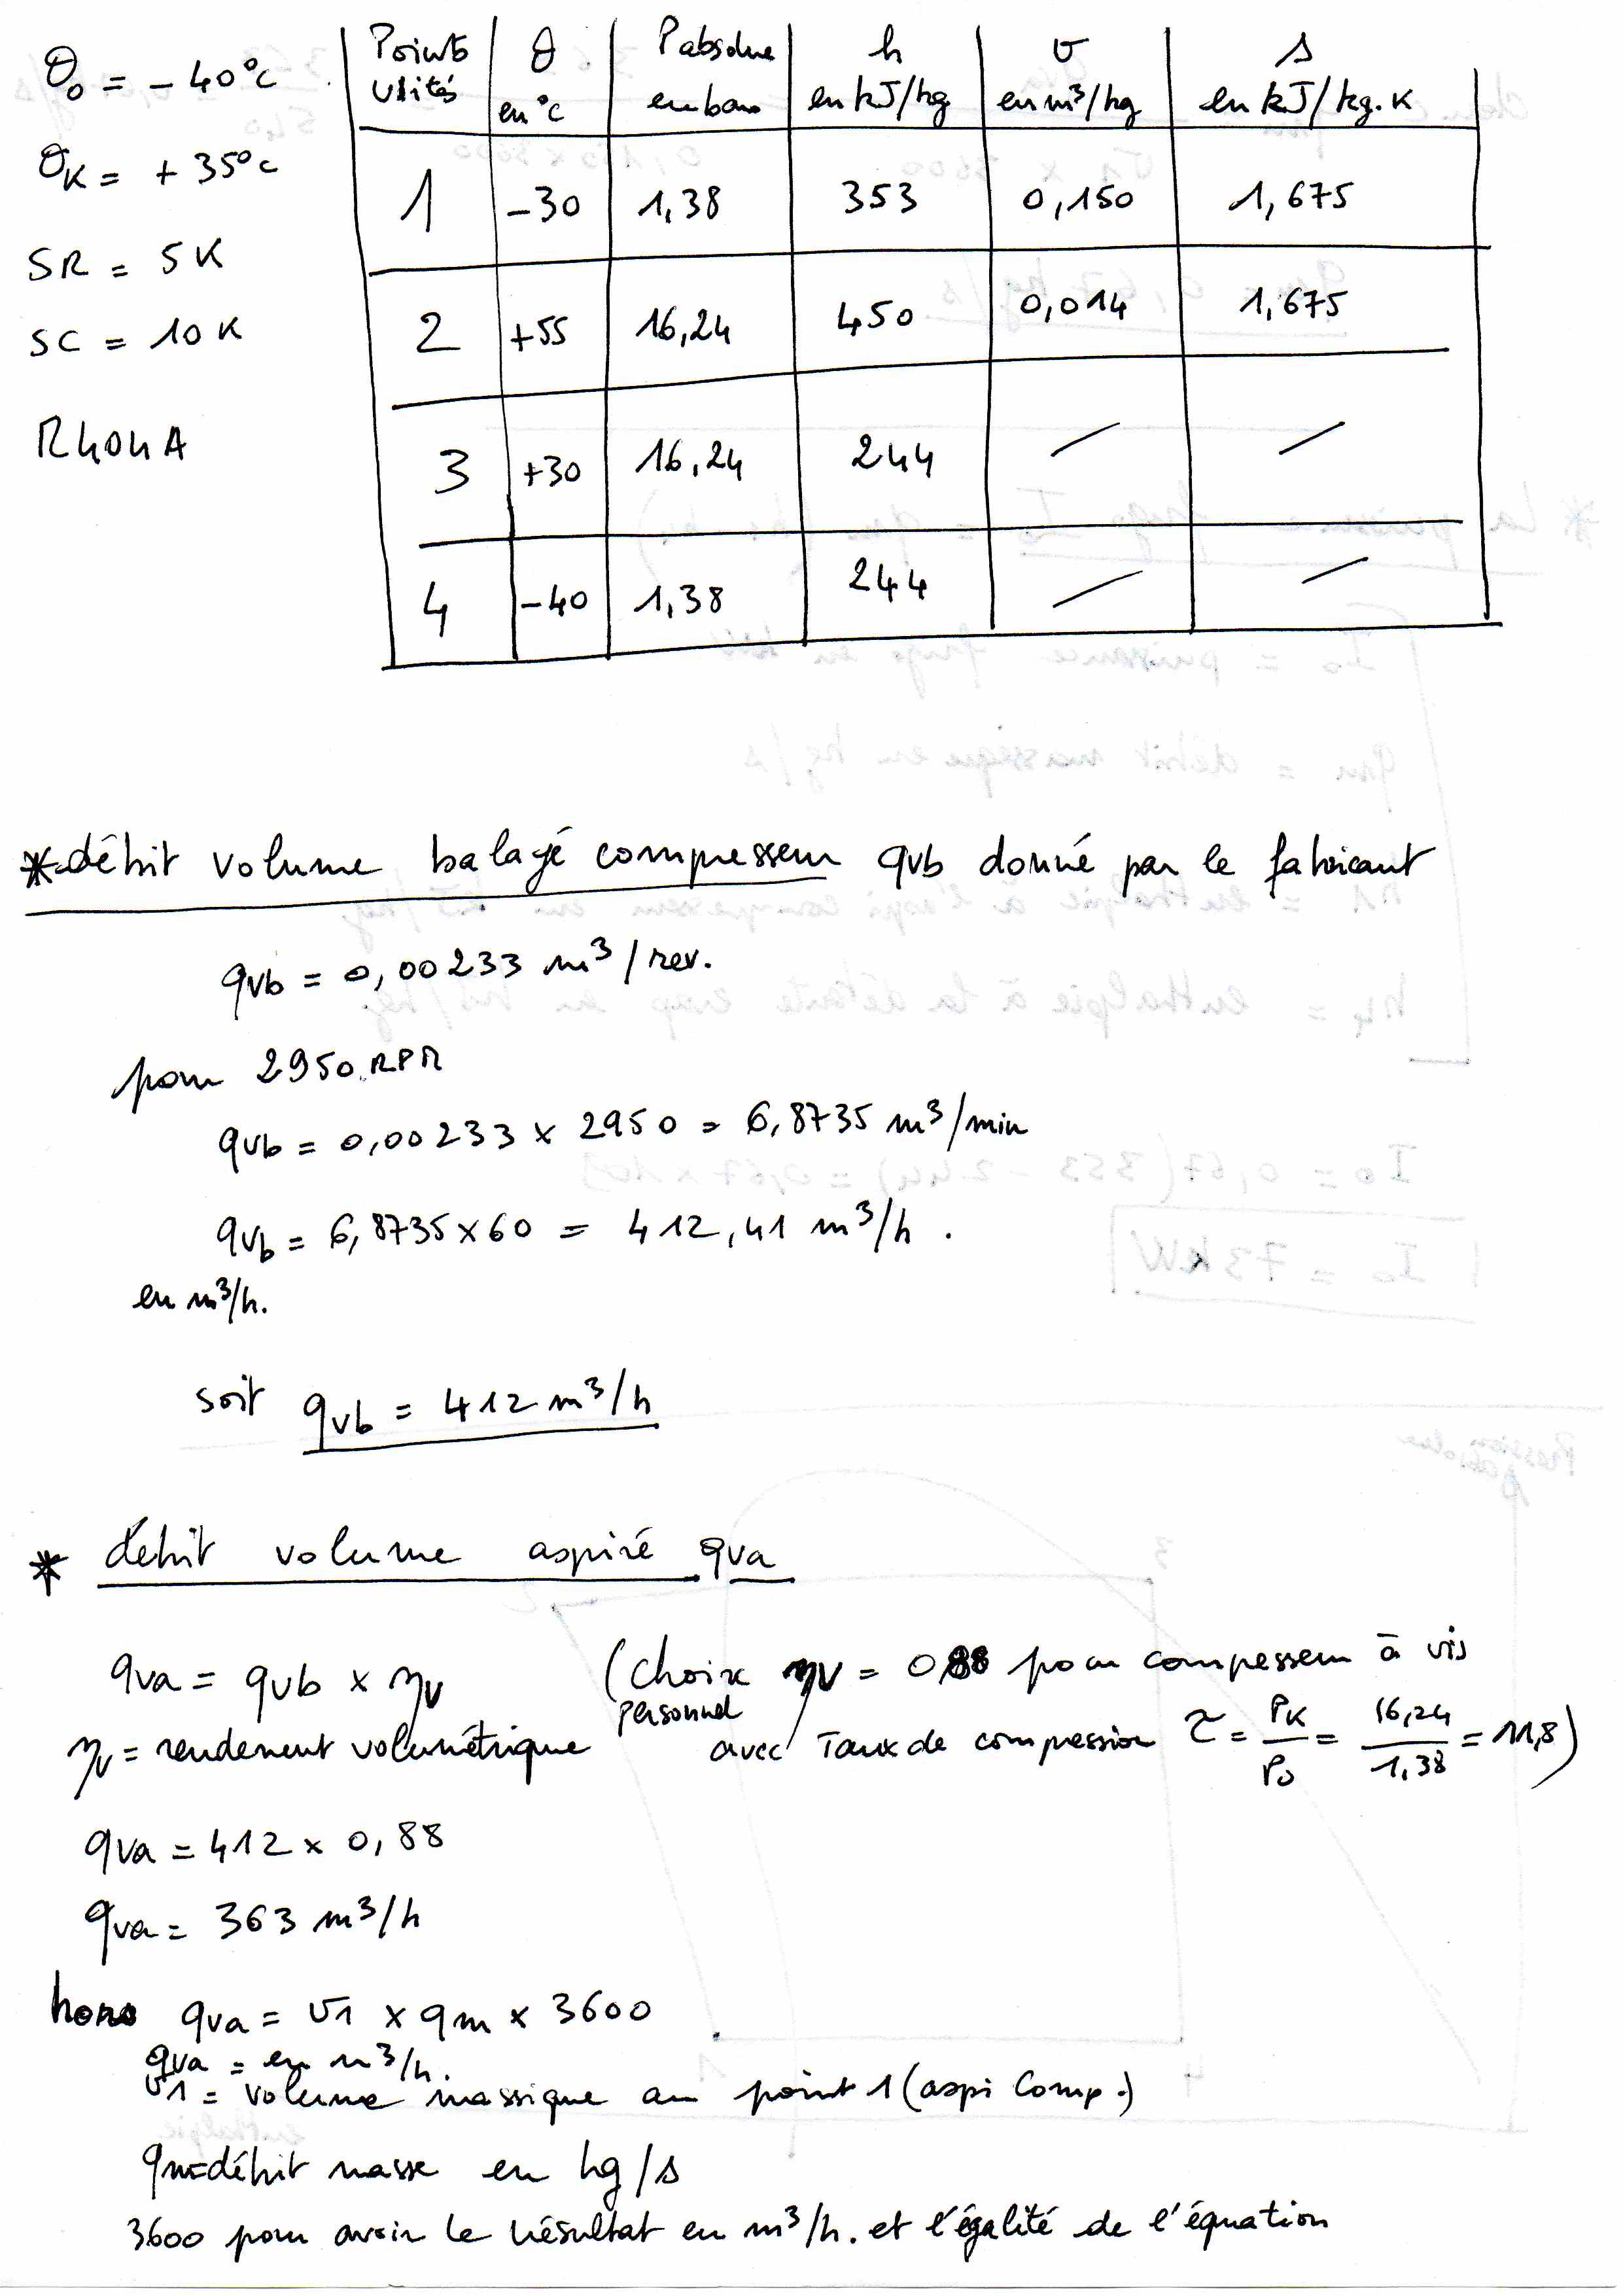 θo = - 40°C
θK = + 35°C
SR = 5K
SC = 10K
R404A
Points utités | θ en °C | Pabsolue en bar | h en kJ/kg | v en m³/kg | s en kJ/kg.K
1 | -30 | 1,38 | 353 | 0,150 | 1,675
2 | +55 | 16,24 | 450 | 0,014 | 1,675
3 | +30 | 16,24 | 244 | / | /
4 | -40 | 1,38 | 244 | / | /
* débit volume balayé compresseur qvb donné par le fabricant
qvb = 0,00233 m³/rev.
pour 2950.RPM
qvb = 0,00233 x 2950 = 6,8735 m³/min
qvb = 6,8735 x 60 = 412,41 m³/h.
en m³/h.
soit qvb = 412 m³/h
* débit volume aspiré qva
qva = qvb x ηv (choix personnel ηv = 0,88 pour compesseur à vis
ηv = rendement volumétrique avec Taux de compression τ = PK/Po = 16,24/1,38 = 11,8)
qva = 412 x 0,88
qva = 363 m³/h
hors qva = v1 x qm x 3600
qva = en m³/h.
v1 = volume massique au point 1 (aspi Comp.)
qm = débit masse en kg/s
3600 pour avoir le résultat en m³/h. et l'égalité de l'équation